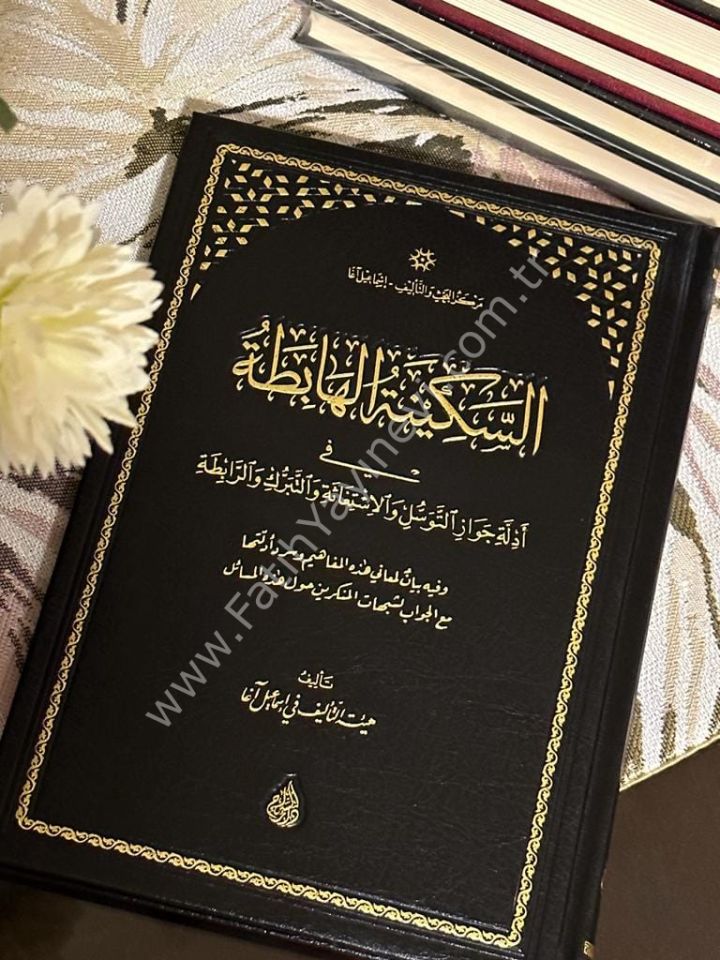 مركز البحث والتأليف - إسماعيل آغا
السَّكِيْنَةُ الهَابِطَةُ
في
أَدِلَّةِ جَوَازِ التَّوَسُّلِ وَالِاسْتِغَاثَةِ وَالتَّبَرُّكِ وَالرَّابِطَةِ
وفيه بيان لمعاني هذه المفاهيم وسرد أدلتها
مع الجواب لشبهات المنكرين حول هذه المسائل
تأليف
هيئة التأليف في إسماعيل آغا
www.FatihYayinevi.com.tr